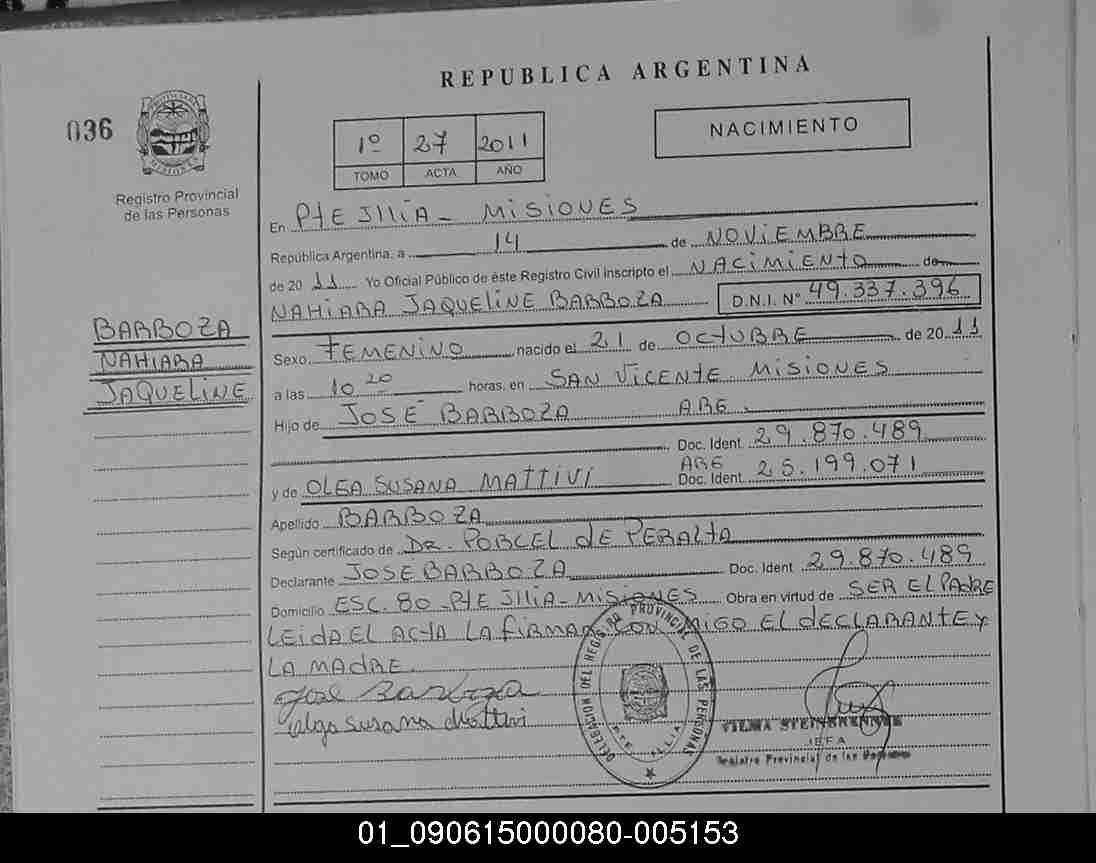 REPUBLICA ARGENTINA
036
NACIMIENTO
1º 27 2011
TOMO ACTA AÑO
PROVINCIA
MISIONES
Registro Provincial
de las Personas
En PtE IllIA - MISIONES
República Argentina, a 14 de NOVIEMBRE
de 20 11 Yo Oficial Público de éste Registro Civil inscripto el NACIMIENTO de
NAHIARA JAQUELINE BARBOZA D.N.I. Nº 49.337.396
BARBOZA
NAHIARA
JAQUELINE
Sexo FEMENINO nacido el 21 de OCTUBRE de 20 11
a las 10 20 horas, en SAN VICENTE MISIONES
Hijo de JOSÉ BARBOZA ARG.
Doc. Ident. 29.870.489
y de OLGA SUSANA MATTIVI ARG Doc. Ident. 25.199.071
Apellido BARBOZA
Según certificado de DR. PORCEL dE PERALTA
Declarante JOSE BARBOZA Doc. Ident 29.870.489
Domicilio ESC. 80 - PtE IllIA - MISIONES Obra en virtud de SER EL PADRE
LEIDA EL ACTA LA FIRMAN CON MIGO EL dECLARANTE Y
LA MADRE.
José Barboza
Olga Susana Mattivi
DELEGACION DEL REGISTRO PROVINCIAL DE LAS PERSONAS
PTE. ILLIA
VILMA
JEFA
Registro Provincial de las Personas
01_090615000080-005153